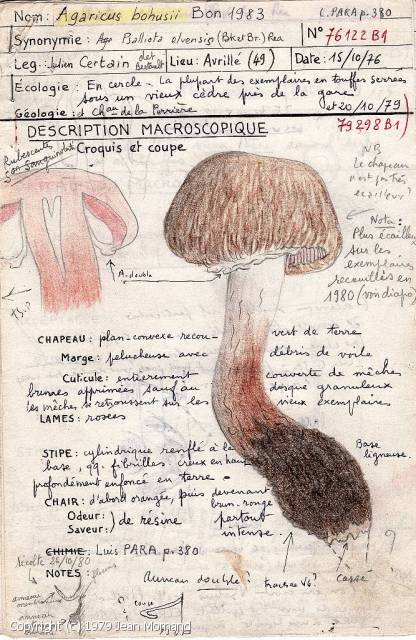 Nom: Agaricus bohusii Bon 1983 L. PARA p.380
Synonymie: Aga Psalliota elvensis (Bk et Br.) Rea N° 76122B1
Leg: Julien Certain det Bertault Lieu: Avrillé (49) Date: 15/10/76
Écologie: En cercle - La plupart des exemplaires en touffes serrées
sous un vieux cèdre près de la gare
Géologie: d Chau de la Perrière et 20/10/79
79298B1
DESCRIPTION MACROSCOPIQUE
Croquis et coupe
Rubescente
NB
Le chapeau
n'est pas très
écailleux
Nota:
Plus écailleux
sur les
exemplaires
recueillis en
1980 (voir diapo)
A. double
CHAPEAU: plan-convexe recou- vert de terre
Marge: pelucheuse avec débris de voile
Cuticule: entièrement couverte de mèches
brunes apprimées sauf au disque granuleux
les mèches se retroussent sur les vieux exemplaires
LAMES: rosées
STIPE: cylindrique renflé à la
base, qq. fibrilles. creux en haut
profondément enfoncé en terre -
Base
ligneuse.
CHAIR: d'abord orangée, puis devenant
brun-rouge
Odeur: } de résine partout
Saveur: intense.
CHIMIE: Luis PARA p.380
récolte 26/10/80
NOTES:
Anneau double? traces VG? Cassé
anneau
membraneux
? coupe
anneau
Copyright (c) 1979 Jean Mornand